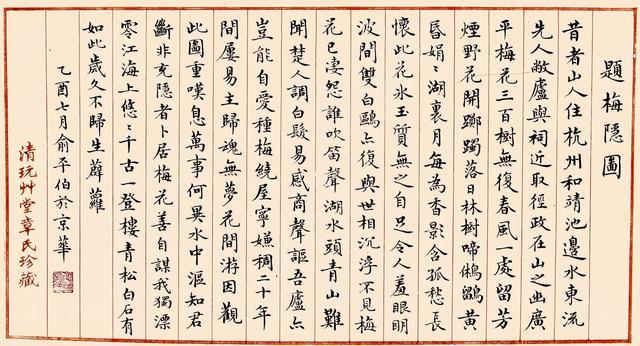 題梅隱圖
昔者山人住杭州和靖池邊水東流
先人敝廬與祠近取徑政在山之幽廣
平梅花三百樹無復春風一處留芳
煙野花開躑躅落日林樹啼鵂鶹黃
昏娟〻湖裏月每為香影含孤愁長
懷此花冰玉質無之自足令人羞眼明
波間雙白鷗亦復與世相沉浮不見梅
花已凄怨誰吹笛聲湖水頭青山難
聞楚人調白髮易感商聲謳吾廬亦
豈能自愛種梅繞屋寧嫌稠二十年
間屢易主歸魂無夢花間游因觀
此圖重嘆息萬事何異水中漚知君
斷非充隱者卜居梅花善自謀我獨漂
零江海上悠〻千古一登樓青松白石有
如此歲久不歸生薜蘿
乙酉七月俞平伯於京華
清玩艸堂章氏珍藏